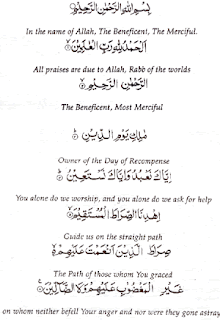 بِسْمِ اللهِ الرَّحْمٰنِ الرَّحِيْمِ
In the name of Allah, The Beneficent, The Merciful.
اَلْحَمْدُ لِلّٰهِ رَبِّ الْعٰلَمِيْنَ ۝
All praises are due to Allah, Rabb of the worlds
الرَّحْمٰنِ الرَّحِيْمِ ۝
The Beneficent, Most Merciful
مٰلِكِ يَوْمِ الدِّيْنِ ۝
Owner of the Day of Recompense
اِيَّاكَ نَعْبُدُ وَاِيَّاكَ نَسْتَعِيْنُ ۝
You alone do we worship, and you alone do we ask for help
اِهْدِنَا الصِّرَاطَ الْمُسْتَقِيْمَ ۝
Guide us on the straight path
صِرَاطَ الَّذِيْنَ اَنْعَمْتَ عَلَيْهِمْ ۝
The Path of those whom You graced
غَيْرِ الْمَغْضُوْبِ عَلَيْهِمْ وَلَا الضَّآلِّيْنَ ۝
on whom neither befell Your anger and nor were they gone astray